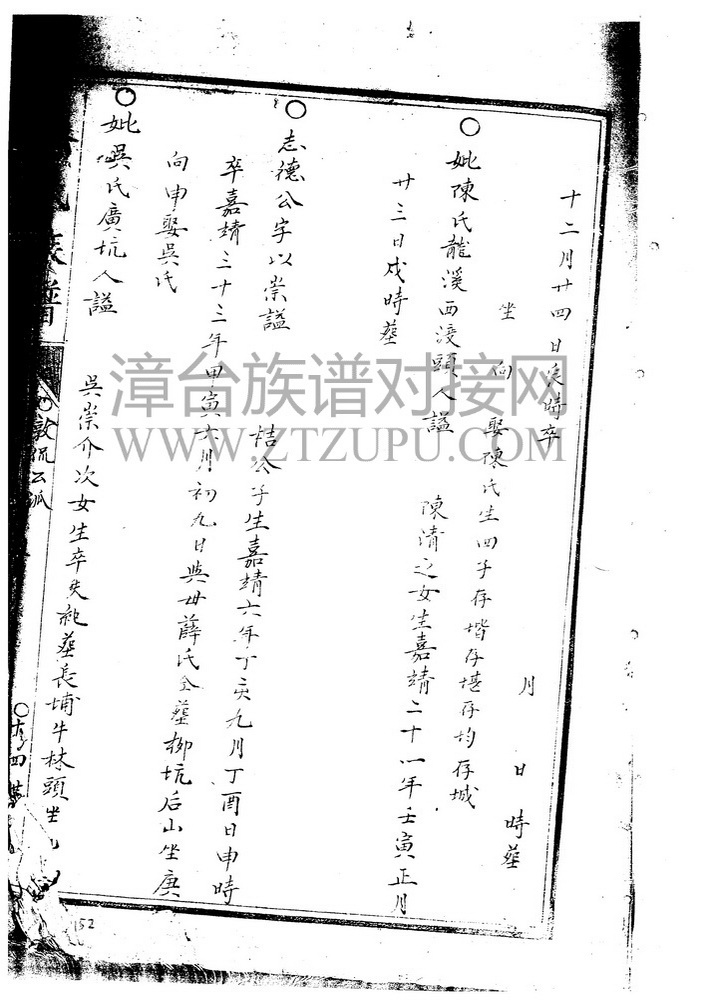 十二月廿四日戌時卒 月 日 時葬
坐 向 娶陳氏生四子存堦存堪存均存城
○妣陳氏龍溪西渡頭人謚 陳清之女生嘉靖二十一年壬寅正月
廿三日戌時葬
○志德公字以崇謚 桔公子生嘉靖六年丁亥九月丁酉日申時
卒嘉靖三十三年甲寅六月初九日與母薛氏仝葬柳坑后山坐庚
向申娶吳氏
○妣吳氏廣坑人謚 吳崇介次女生卒失紀葬長埔牛林頭坐
族譜
○敦
公派
○
四
52
漳台族谱对接网
WWW.ZTZUPU.COM